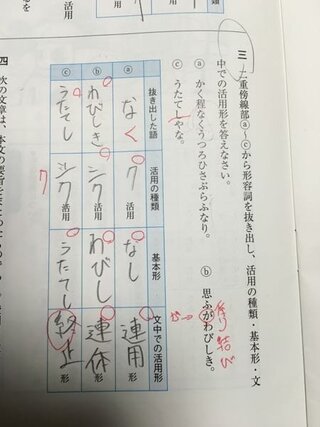 三 二重傍線部ⓐ～ⓒから形容詞を抜き出し、活用の種類・基本形・文
中での活用形を答えなさい。
ⓐ かく程なくうつろひさぶらふなり。 ⓑ 思ふがわびしき。
係り結び
ⓒ うたてしやな。
抜き出した語 活用の種類 基本形 文中での活用形
ⓐ なく ク活用 なし 連用形
ⓑ わびしき シク活用 わびし 連体形
ⓒ うたてし シク活用 うたてし 終止形
ク
四 次の文章は、本文の要旨をまとめたもの